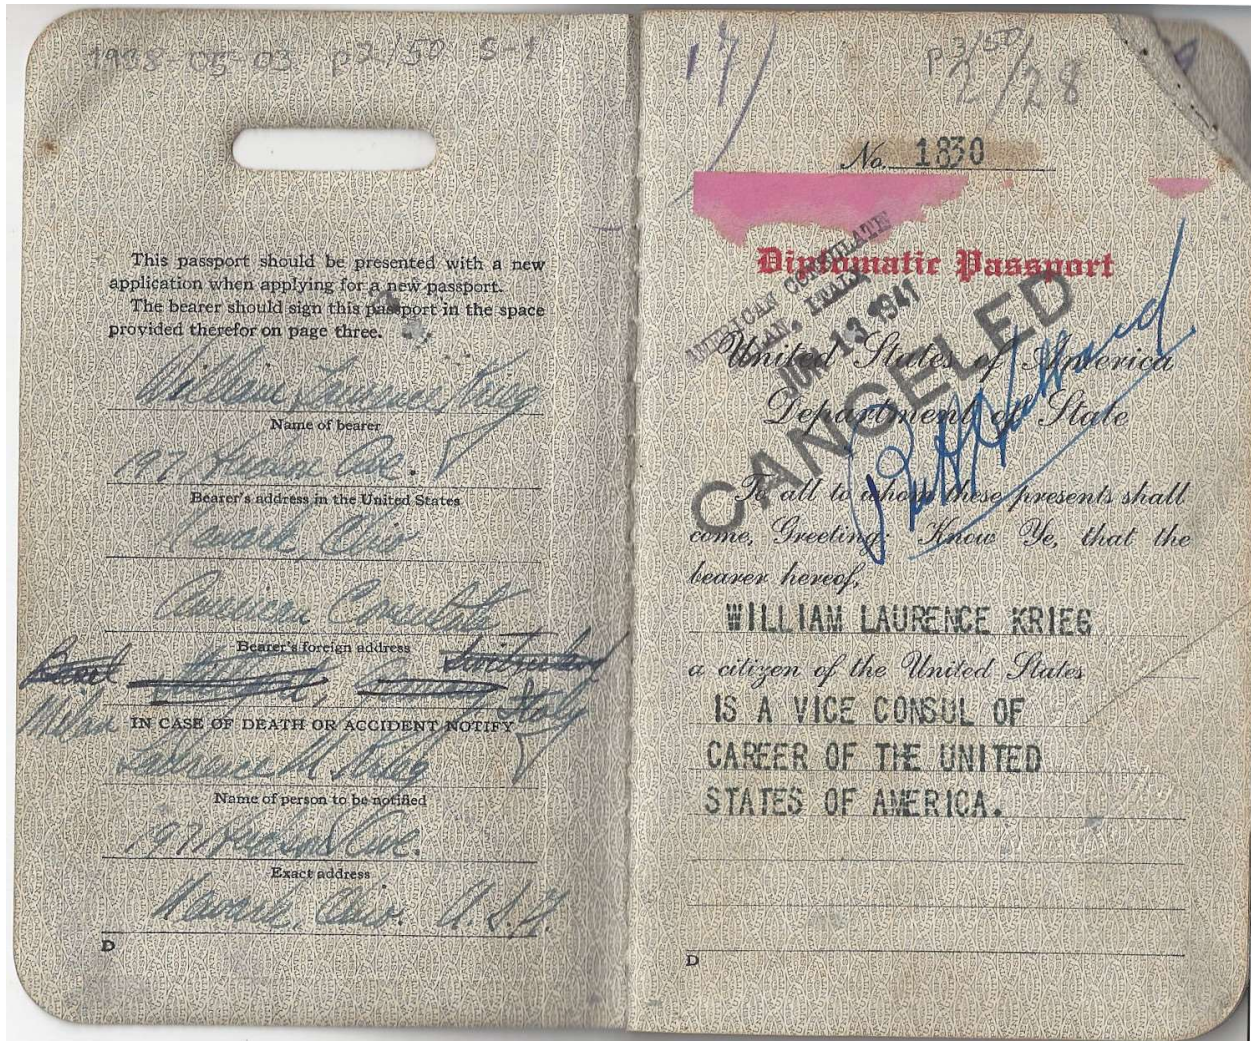 1988-05-03 p2/50 S-1
This passport should be presented with a new
application when applying for a new passport.
The bearer should sign this passport in the space
provided therefor on page three.
William Laurence Krieg
Name of bearer
197 Hudson Ave.
Bearer's address in the United States
Newark, Ohio
American Consulate
Bearer's foreign address
Basel Stuttgart, Germany Switzerland
Milan Italy
IN CASE OF DEATH OR ACCIDENT NOTIFY
Laurence M Krieg
Name of person to be notified
197 Hudson Ave.
Exact address
Newark, Ohio. U.S.A.
D
17/
p3/50
2/28
No. 1830
Diplomatic Passport
AMERICAN CONSULATE
MILAN, ITALY
JUN 13 1941
CANCELED
United States of America
Department of State
To all to whom these presents shall
come, Greeting: Know Ye, that the
bearer hereof,
WILLIAM LAURENCE KRIEG
a citizen of the United States
IS A VICE CONSUL OF
CAREER OF THE UNITED
STATES OF AMERICA.
D